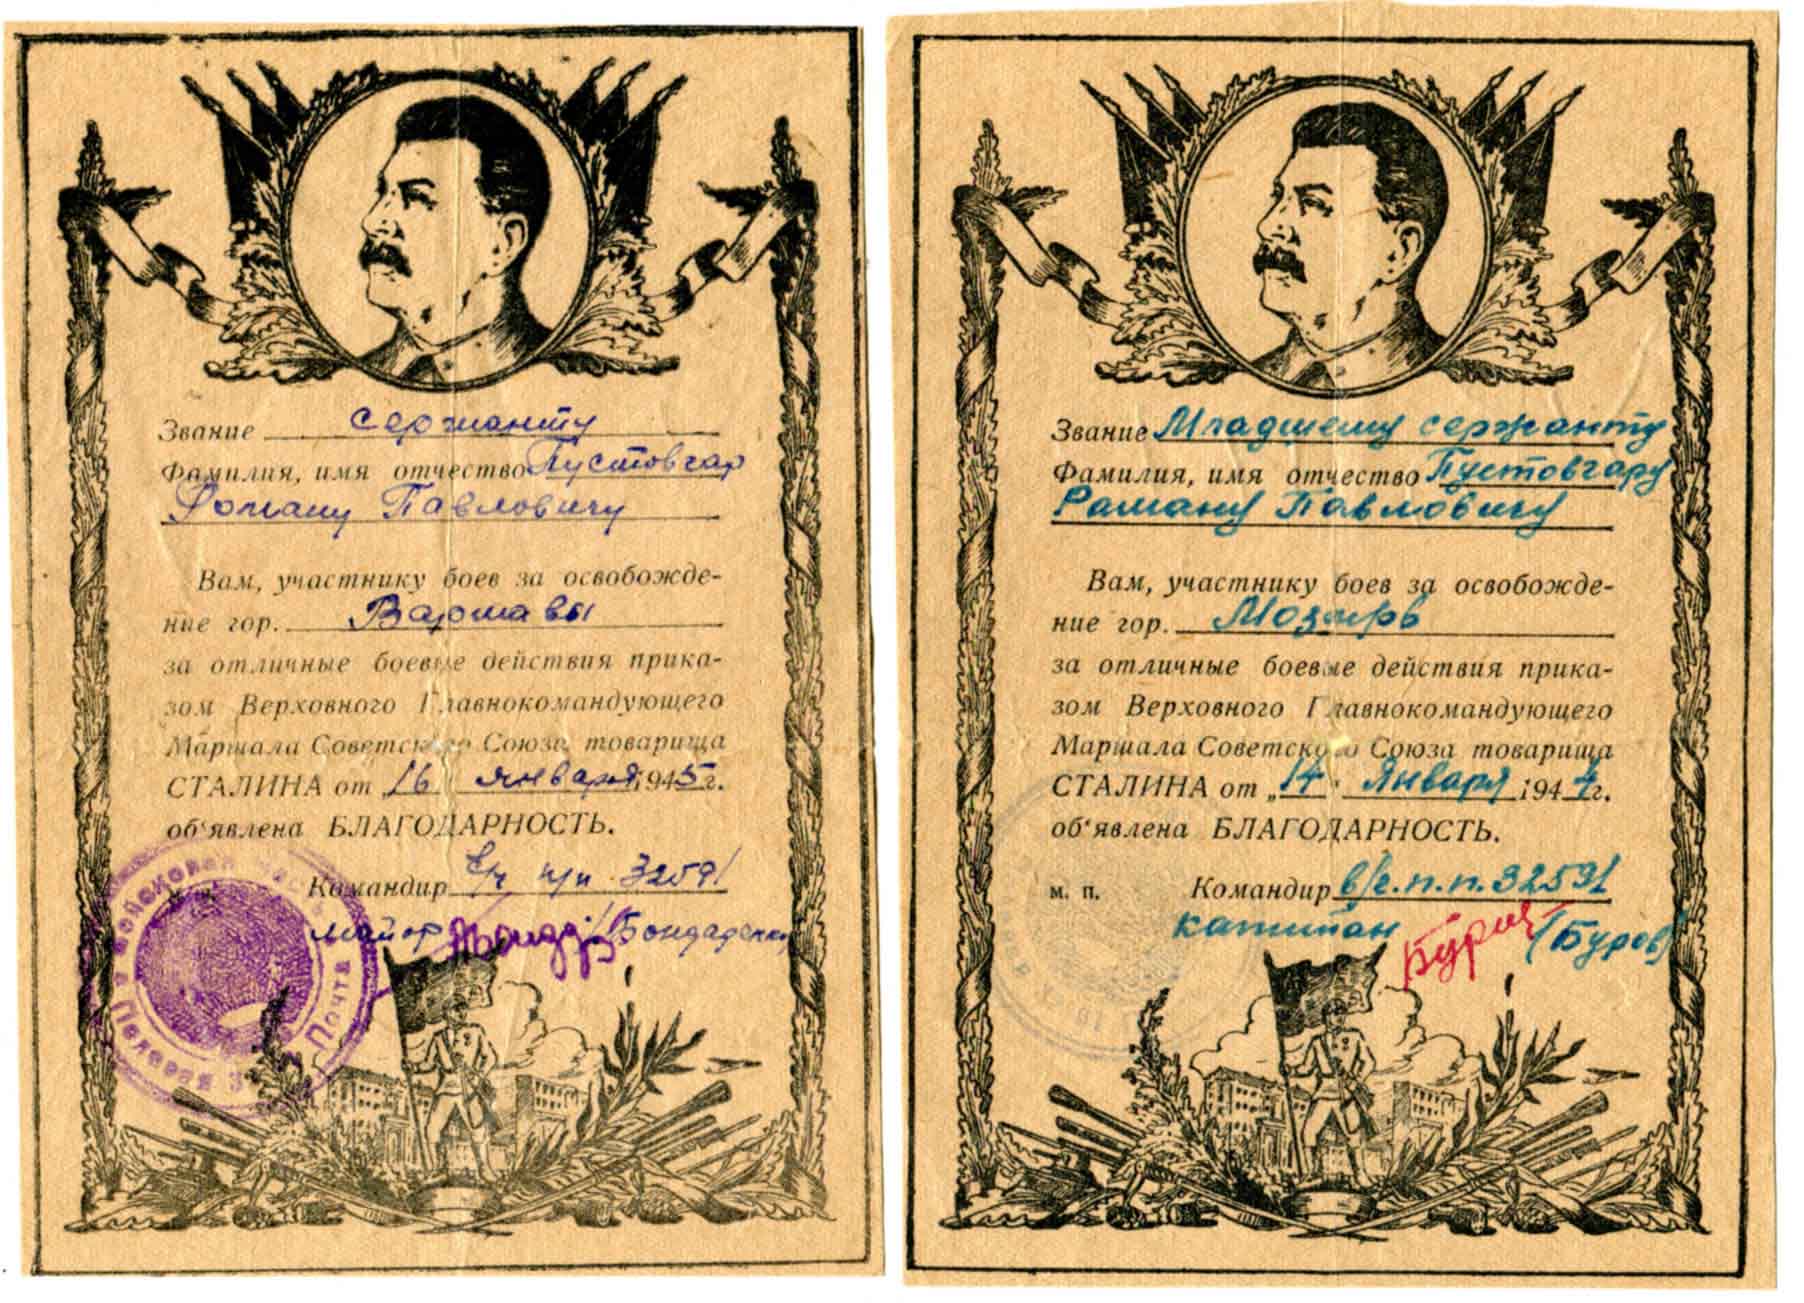 Звание сержанту
Фамилия, имя отчество Пустовгар
Роману Павловичу
Вам, участнику боев за освобожде-
ние гор. Варшавы
за отличные боевые действия прика-
зом Верховного Главнокомандующего
Маршала Советского Союза товарища
СТАЛИНА от „16 января 1945 г.
об‘явлена БЛАГОДАРНОСТЬ.
Командир в/ч п/п 32591
майор
Войсковая часть
Полевая Почта
Звание Младшему сержанту
Фамилия, имя отчество Пустовгару
Раману Павловичу
Вам, участнику боев за освобожде-
ние гор. Мозырь
за отличные боевые действия прика-
зом Верховного Главнокомандующего
Маршала Советского Союза товарища
СТАЛИНА от „14 “ Января 1944 г.
об‘явлена БЛАГОДАРНОСТЬ.
м. п. Командир в/ч.п.п.32591
капитан (Буров)